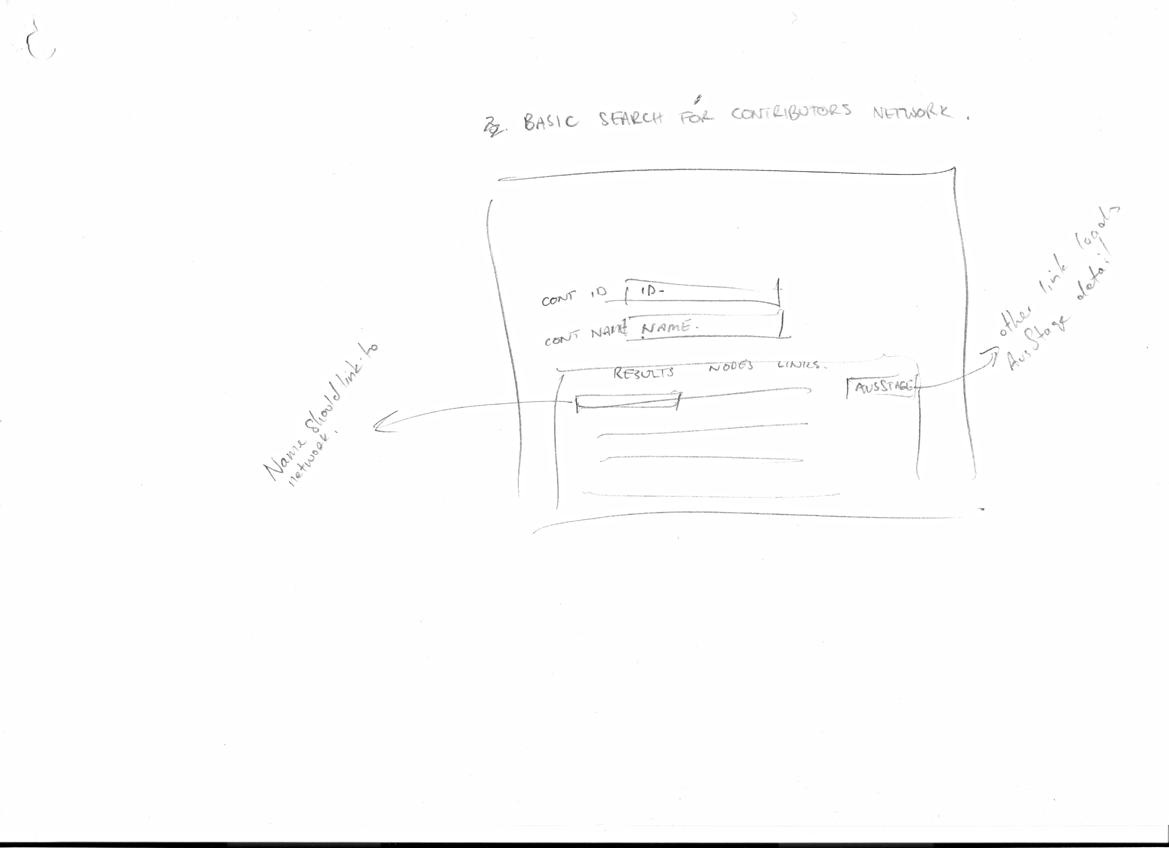 2. BASIC SEARCH FOR CONTRIBUTORS NETWORK.
CONT ID ID-
CONT NAME NAME.
RESULTS NODES LINKS.
AUSSTAGE
Name should link to
network.
other link loads
AusStage detail